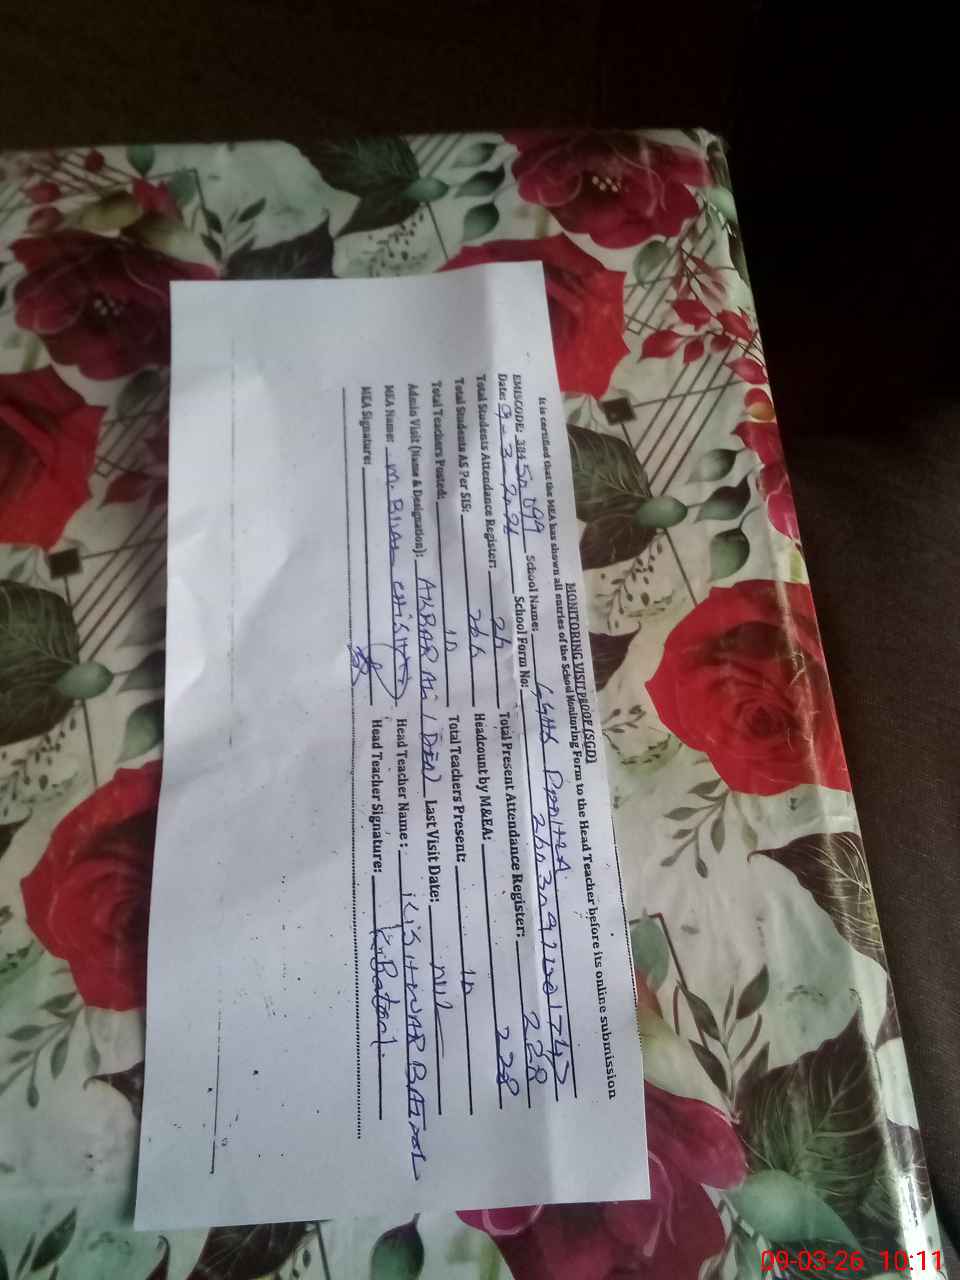 MONITORING VISIT PROOF (SGD)
It is certified that the MEA has shown all entries of the School Monitoring Form to the Head Teacher before its online submission
EMISCODE: School Name: GGHS
Date: 9-3-2026 School Form No:
Total Students Attendance Register: Total Present Attendance Register: 228
Total Students AS Per SIS: Headcount by M&EA: 228
Total Teachers Posted: 10 Total Teachers Present: 10
Admin Visit (Name & Designation): AKBAR Ali / (DEA) Last Visit Date: Nil
MEA Name: M. Bilal CHISHTI Head Teacher Name: KISHWAR BATOOL
MEA Signature: Head Teacher Signature: K. Batool.
09-03-26 10:11